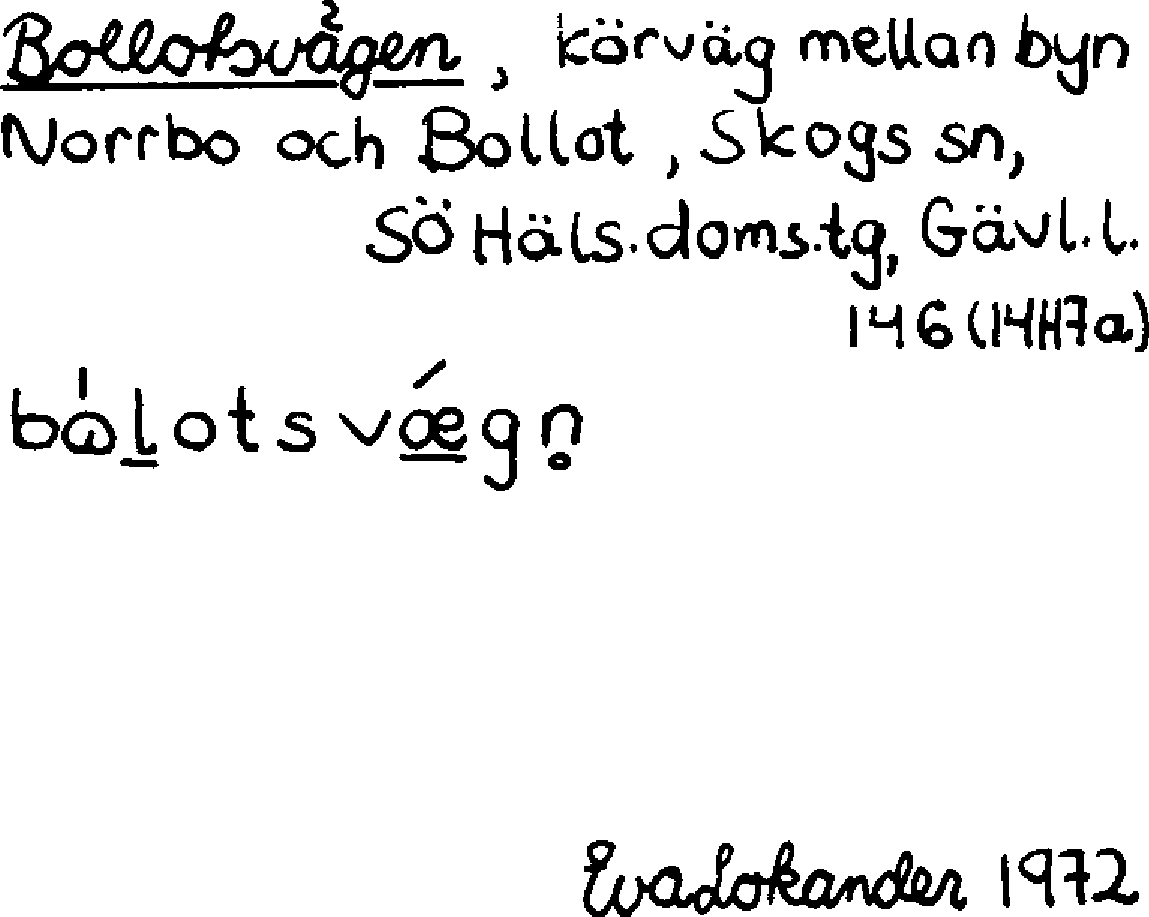 Bollotsvägen, körväg mellan byn
Norrbo och Bollot, Skogs sn,
SÖ Häls. doms.tg, Gävl. l.
146 (14H7a)
bɷ̍l̲otsvǽ̲gn̥
Eva Lokander 1972